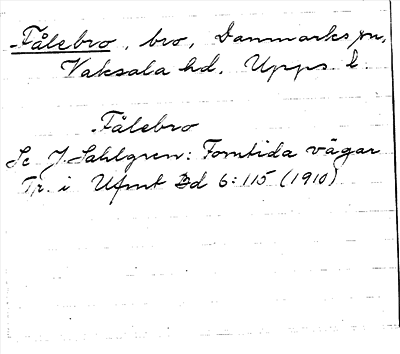 -Fålebro, bro, Danmarks sn,
Vaksala hd. Upps. l.
-Fålebro
Se J. Sahlgren: Forntida vägar
Tr. i Ufmt Bd 6:115 (1910)